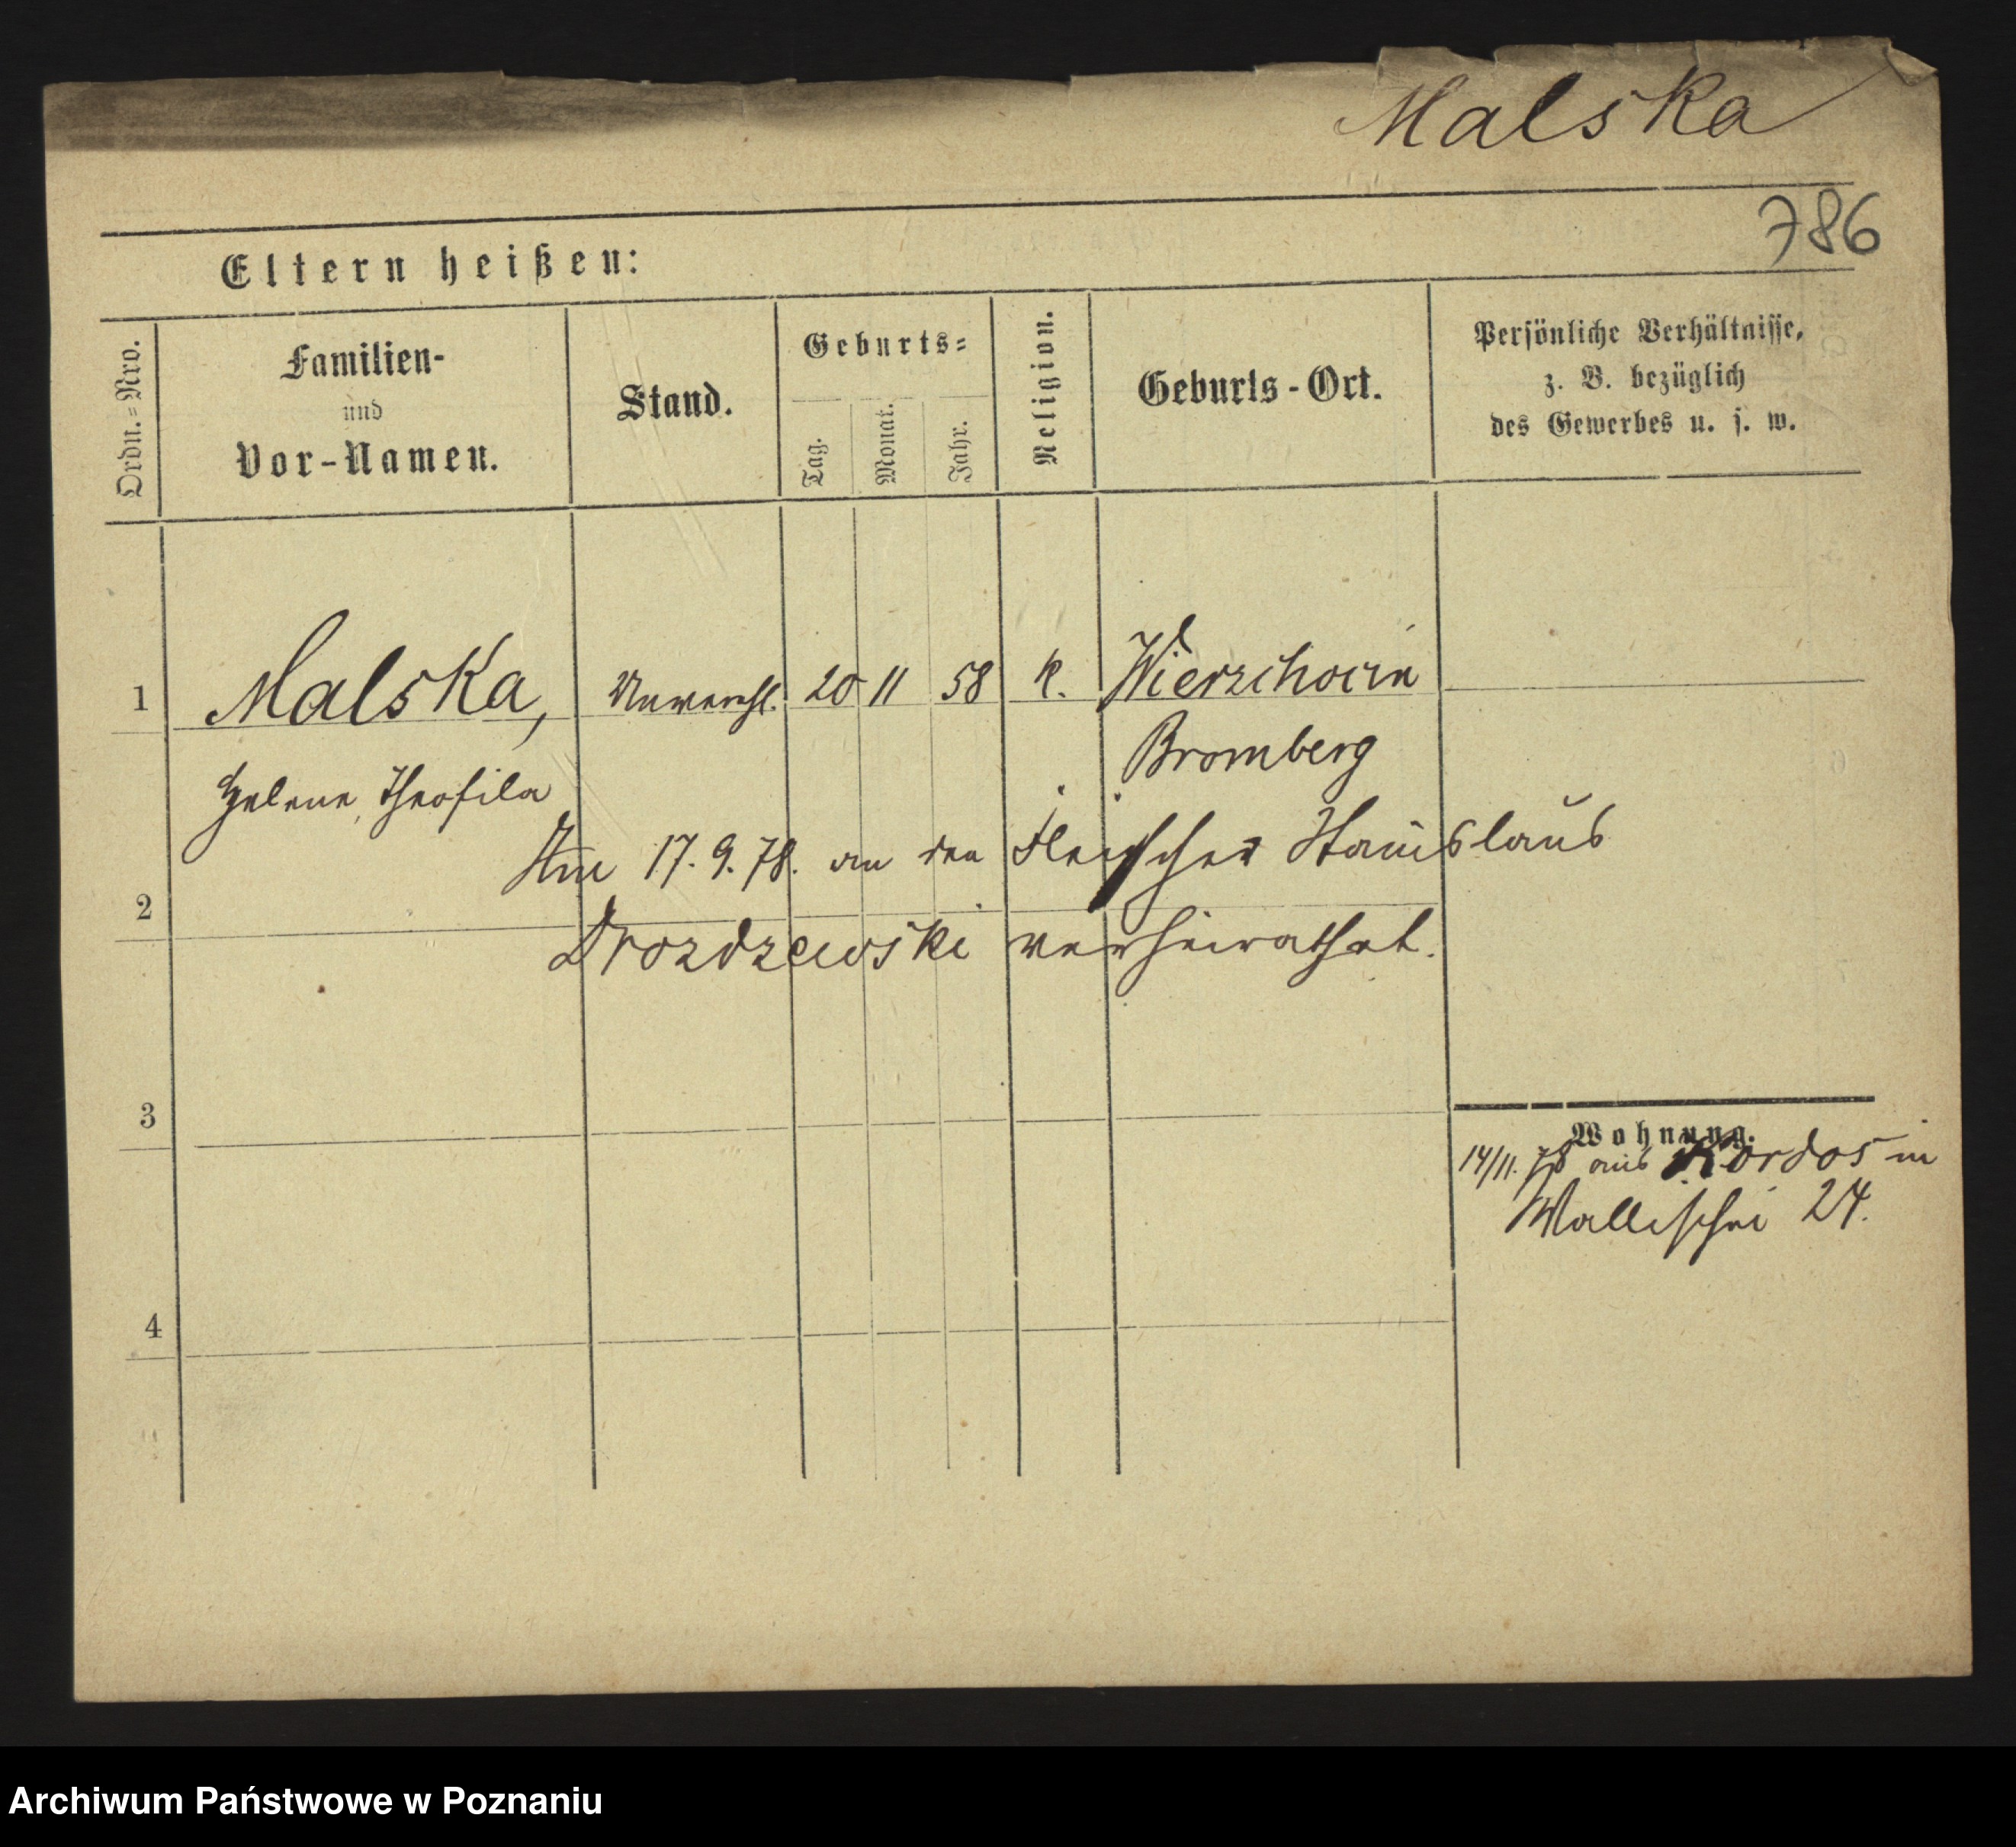 Malska
786
Eltern heißen:
Ordn.=Nro.
Familien-
und
Vor-Namen.
Stand.
Geburts=
Tag.
Monat.
Jahr.
Religion.
Geburts-Ort.
Persönliche Verhältnisse,
z. B. bezüglich
des Gewerbes u. s. w.
1 Malska, Unverehl. 20 11 58 k. Wierzchocin
Bromberg
Helene, Theofila
Am 17. 9. 78. an den Fleischer Stanislaus
2
Drozdzewski verheirathet.
3
Wohnung.
14/11. 78 aus Kordos in
Wallischei 24.
4
Archiwum Państwowe w Poznaniu